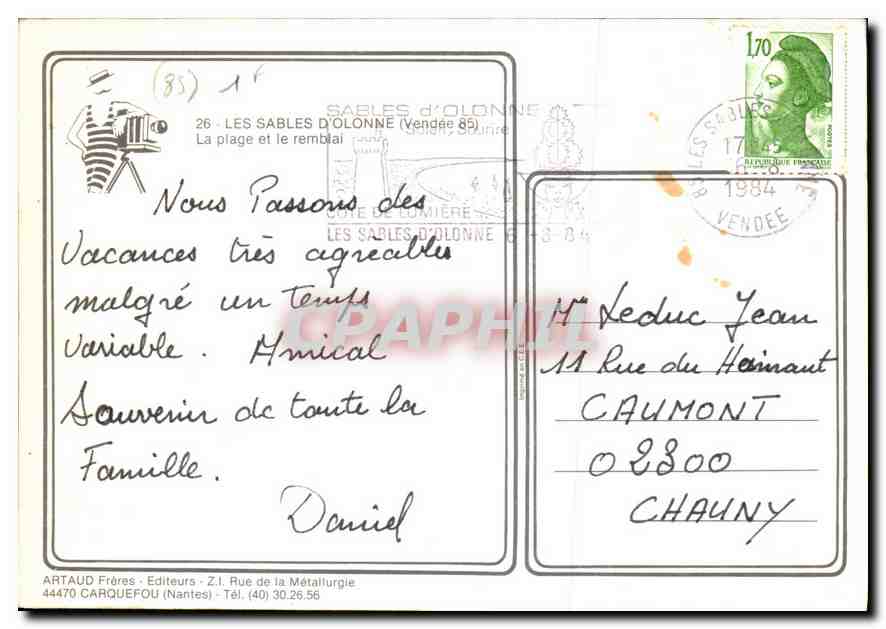 (85) 1F
26 - LES SABLES D'OLONNE (Vendée 85)
La plage et le remblai
SABLES d'OLONNE
COTE DE LUMIÈRE
LES SABLES D'OLONNE 6 -8-84
1,70
REPUBLIQUE FRANÇAISE
POSTES
85 LES SABLES
17 H 45
6-8
1984
VENDEE
Nous Passons des
Vacances très agréables
malgré un temps
variable. Amical
Souvenir de toute la
Famille.
Daniel
Mr Leduc Jean
11 Rue du Hainaut
CAUMONT
02300
CHAUNY
CPAPHIL
Imprimé en C.E.E.
ARTAUD Frères - Editeurs - Z.I. Rue de la Métallurgie
44470 CARQUEFOU (Nantes) - Tél. (40) 30.26.56